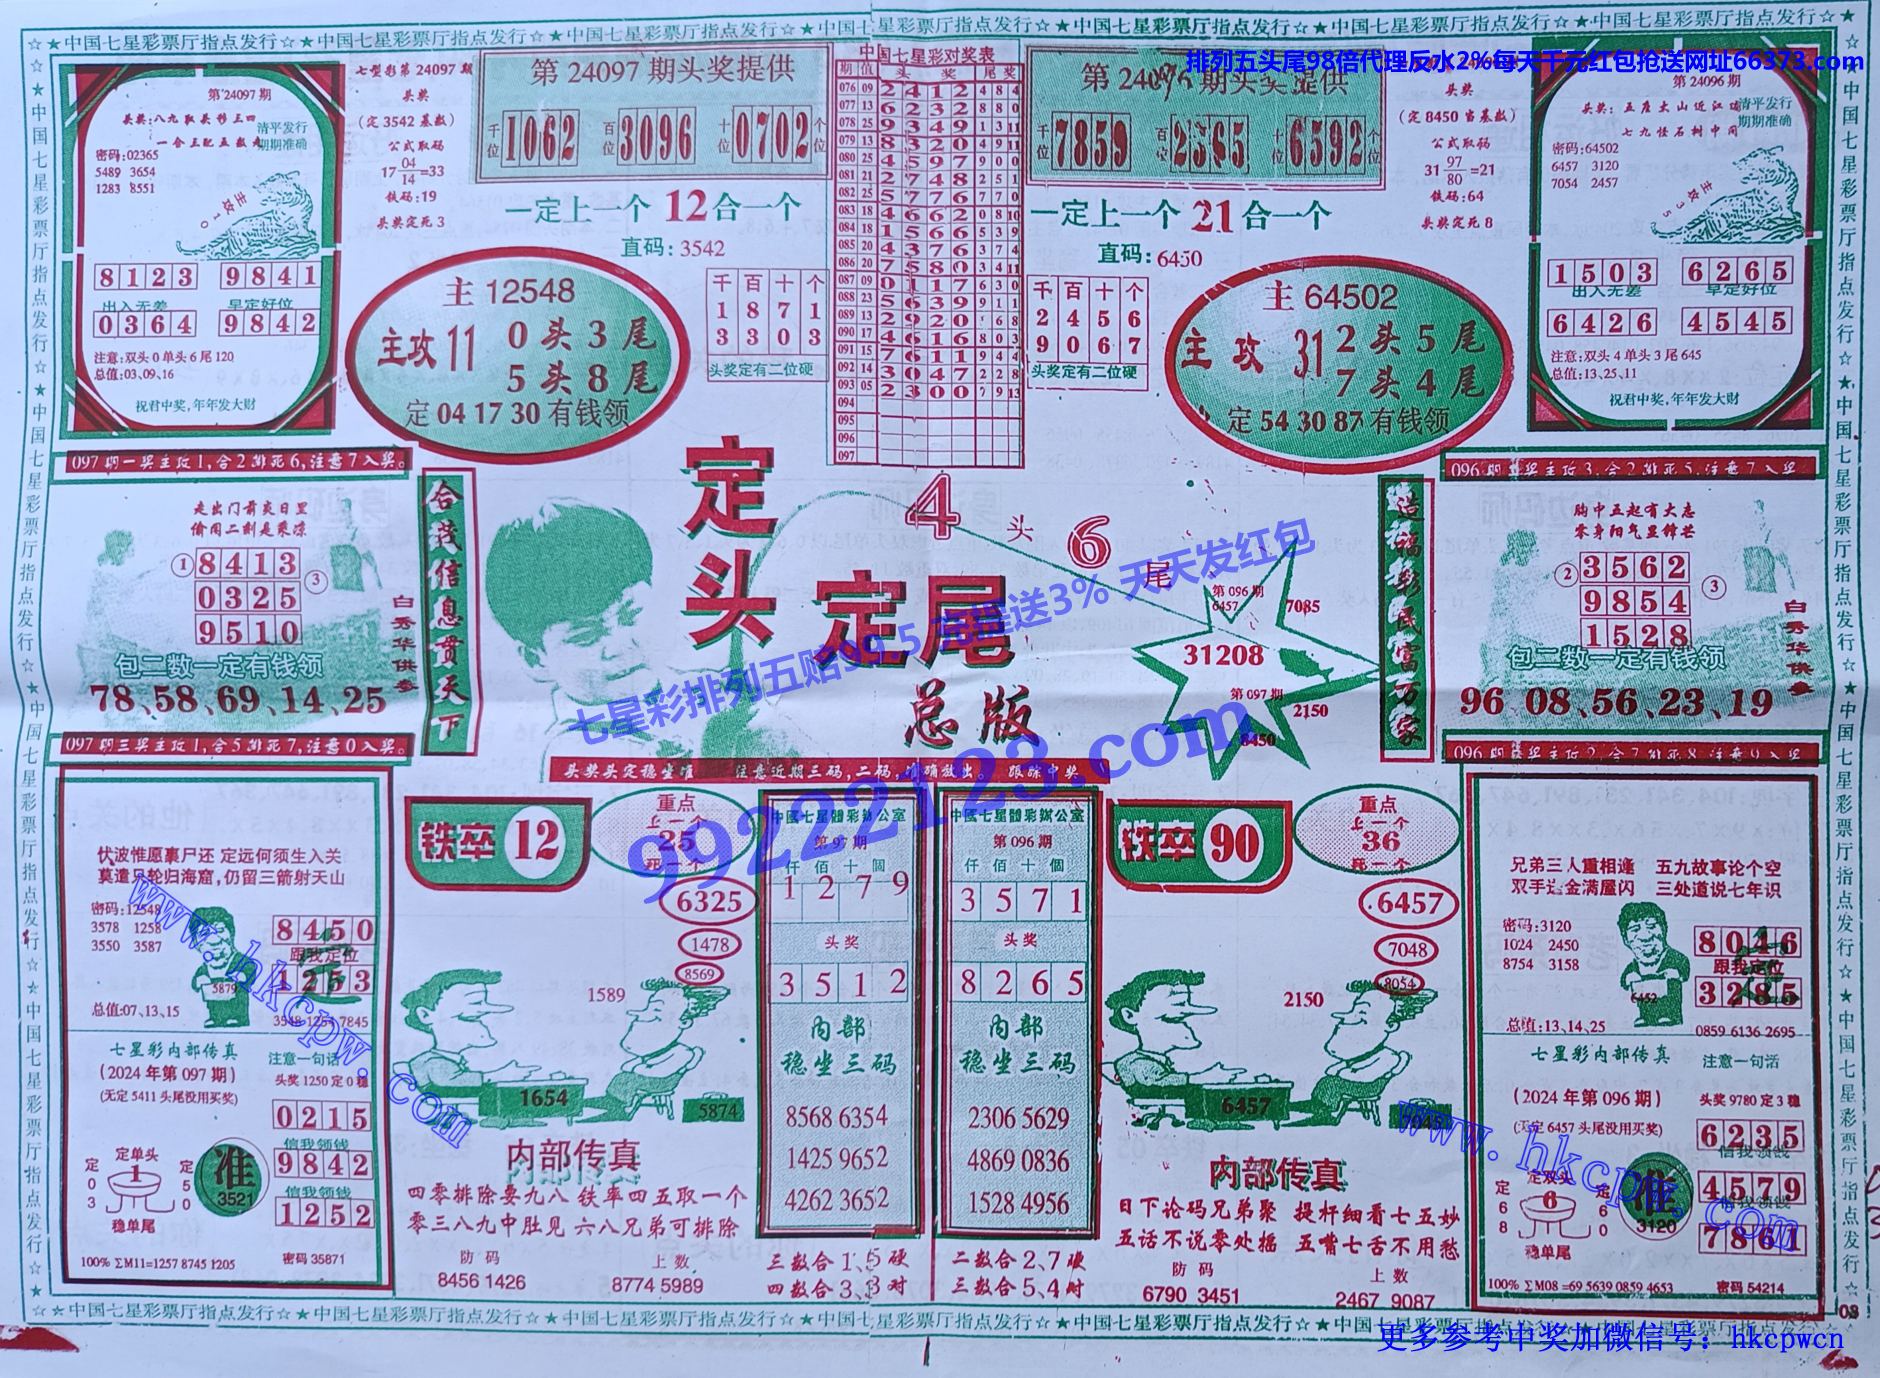 ☆★中国七星彩票厅指点发行☆★中国七星彩票厅指点发行☆★中国七星彩票厅指点发行☆★中国七星彩票厅指点发行☆★中国七星彩票厅指点发行☆★中国七星彩票厅指点发行☆★
排列五头尾98倍代理反水2%每天千元红包抢送网址66373.com
第24097期
头奖:八九取头移三四
清平发行
期期准确
密码:02365
5489 3654
1283 8551
主攻10
8123 9841
出入无差 早定好位
0364 9842
注意:双头0单头6尾120
总值:03、09、16
祝君中奖,年年发大财
七型彩第24097期
头奖
(定3542基数)
公式取码
17 04/14 =33
铁码:19
头奖定死3
第24097期头奖提供
千位 1062 百位 3096 十位 0702 个位
一定上一个12合一个
直码:3542
主12548
主攻11
0头3尾
5头8尾
定041730有钱领
千百十个
1871
3303
头奖定有二位硬
中国七星彩对奖表
期 值 头奖 尾奖
076 09 2412 4 8 4
077 13 6232 8 8 0
078 25 9349 1 3 11
079 13 8320 4 9 11
080 25 4597 9 0 0
081 21 2748 2 5 1
082 25 5776 7 7 0
083 18 4662 0 8 10
084 18 1566 5 3 9
085 20 4376 3 7 4
086 20 7580 3 4 11
087 09 0117 6 3 0
088 23 5639 9 1 1
089 13 2920
090 17 4616 8 0 3
091 15 7611 9 4 4
092 14 3047 2 2 8
093 05 2300 7 9 13
094
095
096
097
第24096期头奖提供
千位 7859 百位 2365 十位 6592 个位
一定上一个21合一个
直码:6450
千百十个
2456
9067
头奖定有二位硬
主64502
主攻31
2头5尾
7头4尾
定543087有钱领
头奖
(定8450当基数)
公式取码
31 97/80 =21
铁码:64
头奖定死8
第24096期
头奖:五座大山近江边
七九怪石树中间
清平发行
期期准确
密码:64502
6457 3120
7054 2457
主攻35
1503 6265
出入无差 早定好位
6426 4545
注意:双头4单头3尾645
总值:13、25、11
祝君中奖,年年发大财
097期一奖主攻1,合2排死6,注意7入奖。
走出门前炎日里
偷闲二刻是乘凉
①8413③
0325
9510
白秀华供参
包二数一定有钱领
78、58、69、14、25
097期三奖主攻1,合5排死7,注意0入奖。
合茂信息贯天下
定头
定尾
4头6尾
总版
七星彩排列五贴99.5 充提送3% 天天发红包
99222123.com
第096期
6457
7085
31208
第097期
2150
8450
造福彩民富万家
096期一奖主攻3,合2排死5,注意7入奖。
胸中五起有大志
零身阳气显锋芒
②3562③
9854
1528
白秀华供参
包二数一定有钱领
96 08、56、23、19
头奖头定稳坐准 注意近期三码,二码,准确放出。 跟踪中奖
伏波惟愿裹尸还 定远何须生入关
莫遣只轮归海窟,仍留三箭射天山
密码:12548
3578 1258
3550 3587
5879
总值:07、13、15
8450
跟我定位
1253
3548 1254 7845
七星彩内部传真
(2024年第097期)
(无定5411头尾没用买奖)
注意一句话
头奖1250定0稳
0215
信我领钱
9842
信我领钱
1252
定单头
定03 1 定50
稳单尾
准
3521
100% ΣM11=1257 8745 1205
密码35871
铁卒12
重点
上一个
25
死一个
6325
1478
8569
1589
1654
5874
内部传真
四零排除要九八 铁率四五取一个
零三八九中肚见 六八兄弟可排除
防码 上数
8456 1426 8774 5989
中國七星體彩辦公室
第97期
仟佰十個
1279
头奖
3512
内部
稳坐三码
8568 6354
1425 9652
4262 3652
三数合1、5硬
四数合3、8对
中國七星體彩辦公室
第096期
仟佰十個
3571
头奖
8265
内部
稳坐三码
2306 5629
4869 0836
1528 4956
二数合2、7硬
三数合5、4对
铁卒90
重点
上一个
36
死一个
6457
7048
8054
2150
6457
7045
内部传真
日下论码兄弟聚 提杆细看七五妙
五话不说零处摇 五嘴七舌不用愁
防码 上数
6790 3451 2467 9087
兄弟三人重相逢 五九故事论个空
双手送金满屋闪 三处道说七年识
密码:3120
1024 2450
8754 3158
6452
总值:13、14、25
8046
跟我定位
3285
0859 6136 2695
七星彩内部传真
(2024年第096期)
(无定6457头尾没用买奖)
注意一句话
头奖9780定3稳
6235
信我领钱
4579
信我领钱
7861
定双头
定68 6 定60
稳单尾
准
3120
100% ΣM08=69 5639 0859 4653
密码54214
www.hkcpw.com
www.hkcpw.com
08
更多参考中奖加微信号:hkcpwcn